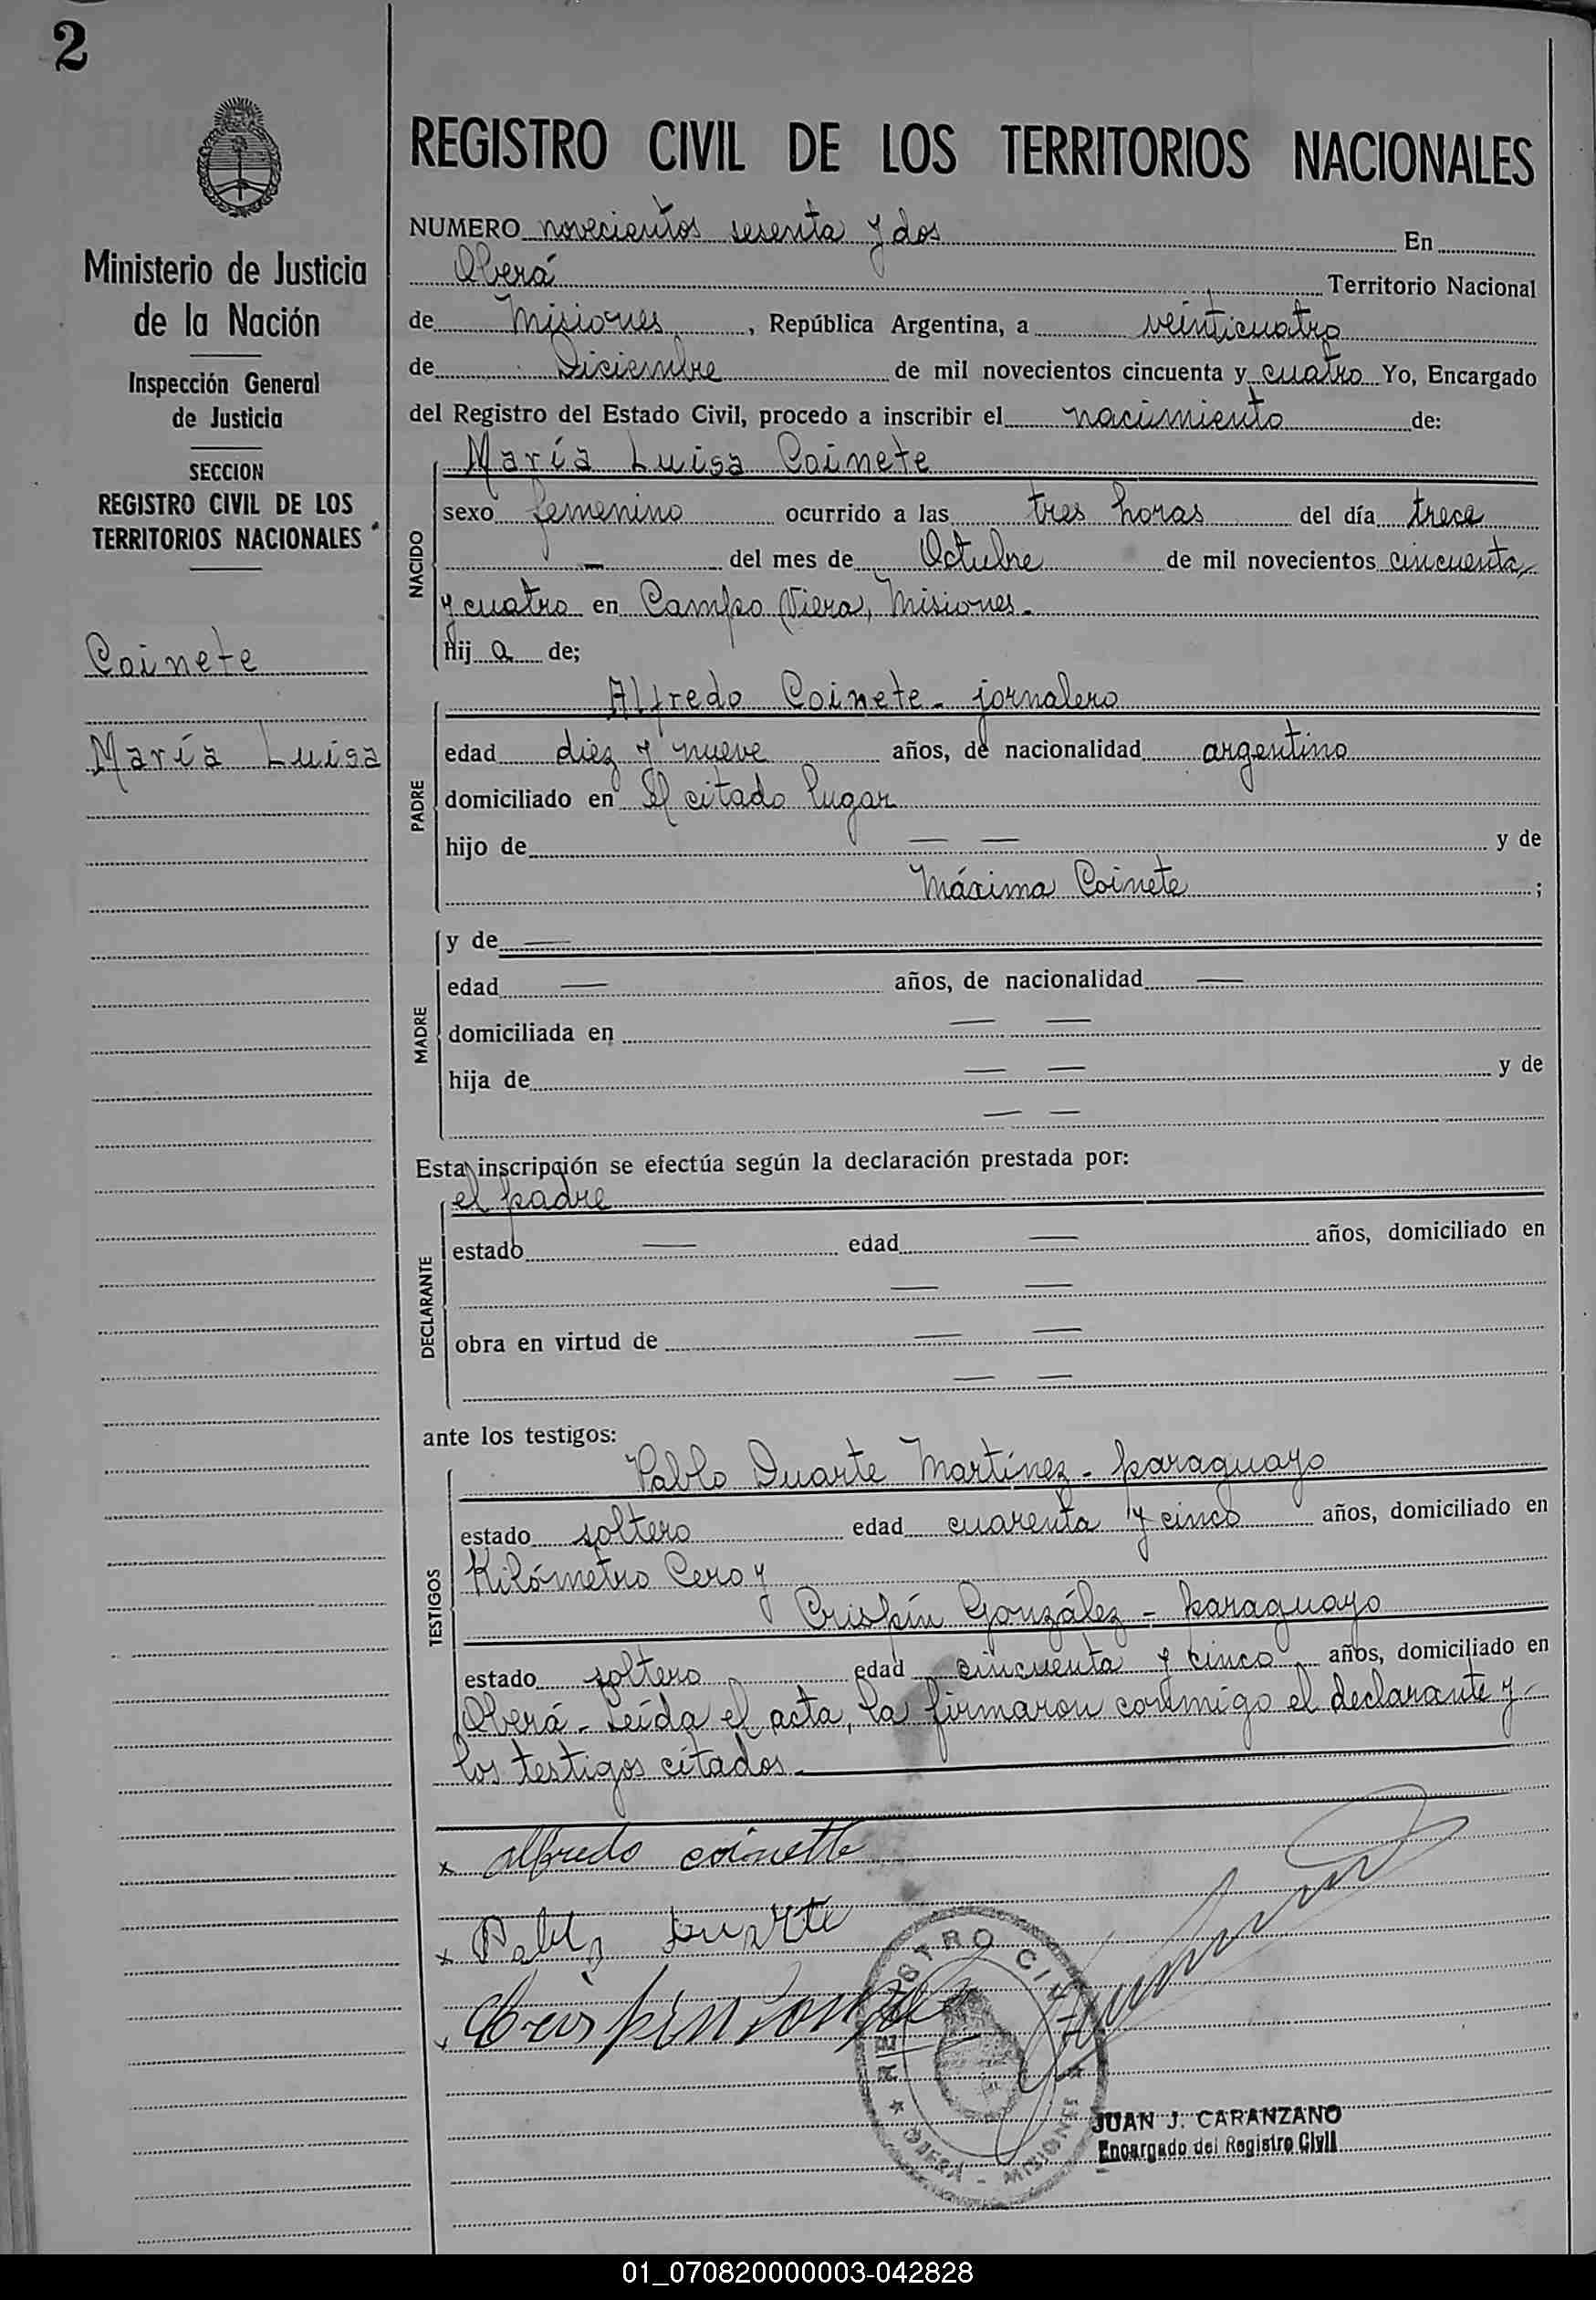 2
Ministerio de Justicia
de la Nación
Inspección General
de Justicia
SECCION
REGISTRO CIVIL DE LOS
TERRITORIOS NACIONALES
Coinete
María Luisa
REGISTRO CIVIL DE LOS TERRITORIOS NACIONALES
NUMERO novecientos sesenta y dos En
Oberá Territorio Nacional
de Misiones, República Argentina, a veinticuatro
de Diciembre de mil novecientos cincuenta y cuatro Yo, Encargado
del Registro del Estado Civil, procedo a inscribir el nacimiento de:
NACIDO
María Luisa Coinete
sexo femenino ocurrido a las tres horas del día trece
— del mes de Octubre de mil novecientos cincuenta
y cuatro en Campo Viera, Misiones.
hij a de;
PADRE
Alfredo Coinete - jornalero
edad diez y nueve años, de nacionalidad argentino
domiciliado en El citado lugar
hijo de — — y de
Máxima Coinete ;
MADRE
y de —
edad — años, de nacionalidad —
domiciliada en — —
hija de — — y de
— —
Esta inscripción se efectúa según la declaración prestada por:
DECLARANTE
el padre
estado — edad — años, domiciliado en
— —
obra en virtud de — —
— —
ante los testigos:
TESTIGOS
Pablo Duarte Martínez - paraguayo
estado soltero edad cuarenta y cinco años, domiciliado en
Kilómetro Cero y
Crispín González - paraguayo
estado soltero edad cincuenta y cinco años, domiciliado en
Oberá - Leída el acta, la firmaron conmigo el declarante y
los testigos citados.
x alfredo coinette
x Pablo Duarte
Crispin Gonzalez
REGISTRO CIVIL
OBERÁ - MISIONES
JUAN J. CARANZANO
Encargado del Registro Civil
01_070820000003-042828